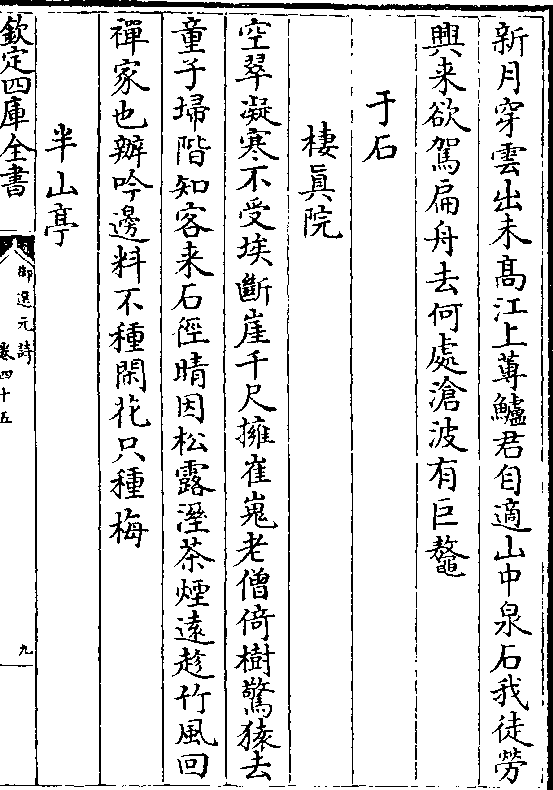 新月穿雲出未髙江上蓴鱸君自適山中泉石我徒勞
興来欲駕扁舟去何處滄波有巨鼇
于石
棲真院
空翠凝寒不受埃斷崖千尺擁崔嵬老僧倚樹驚猿去
童子埽階知客来石徑晴因松露溼茶煙遠趁竹風回
禪家也辦吟邊料不種閑花只種梅
半山亭
欽定四庫全書
御選元詩
卷四十五
九